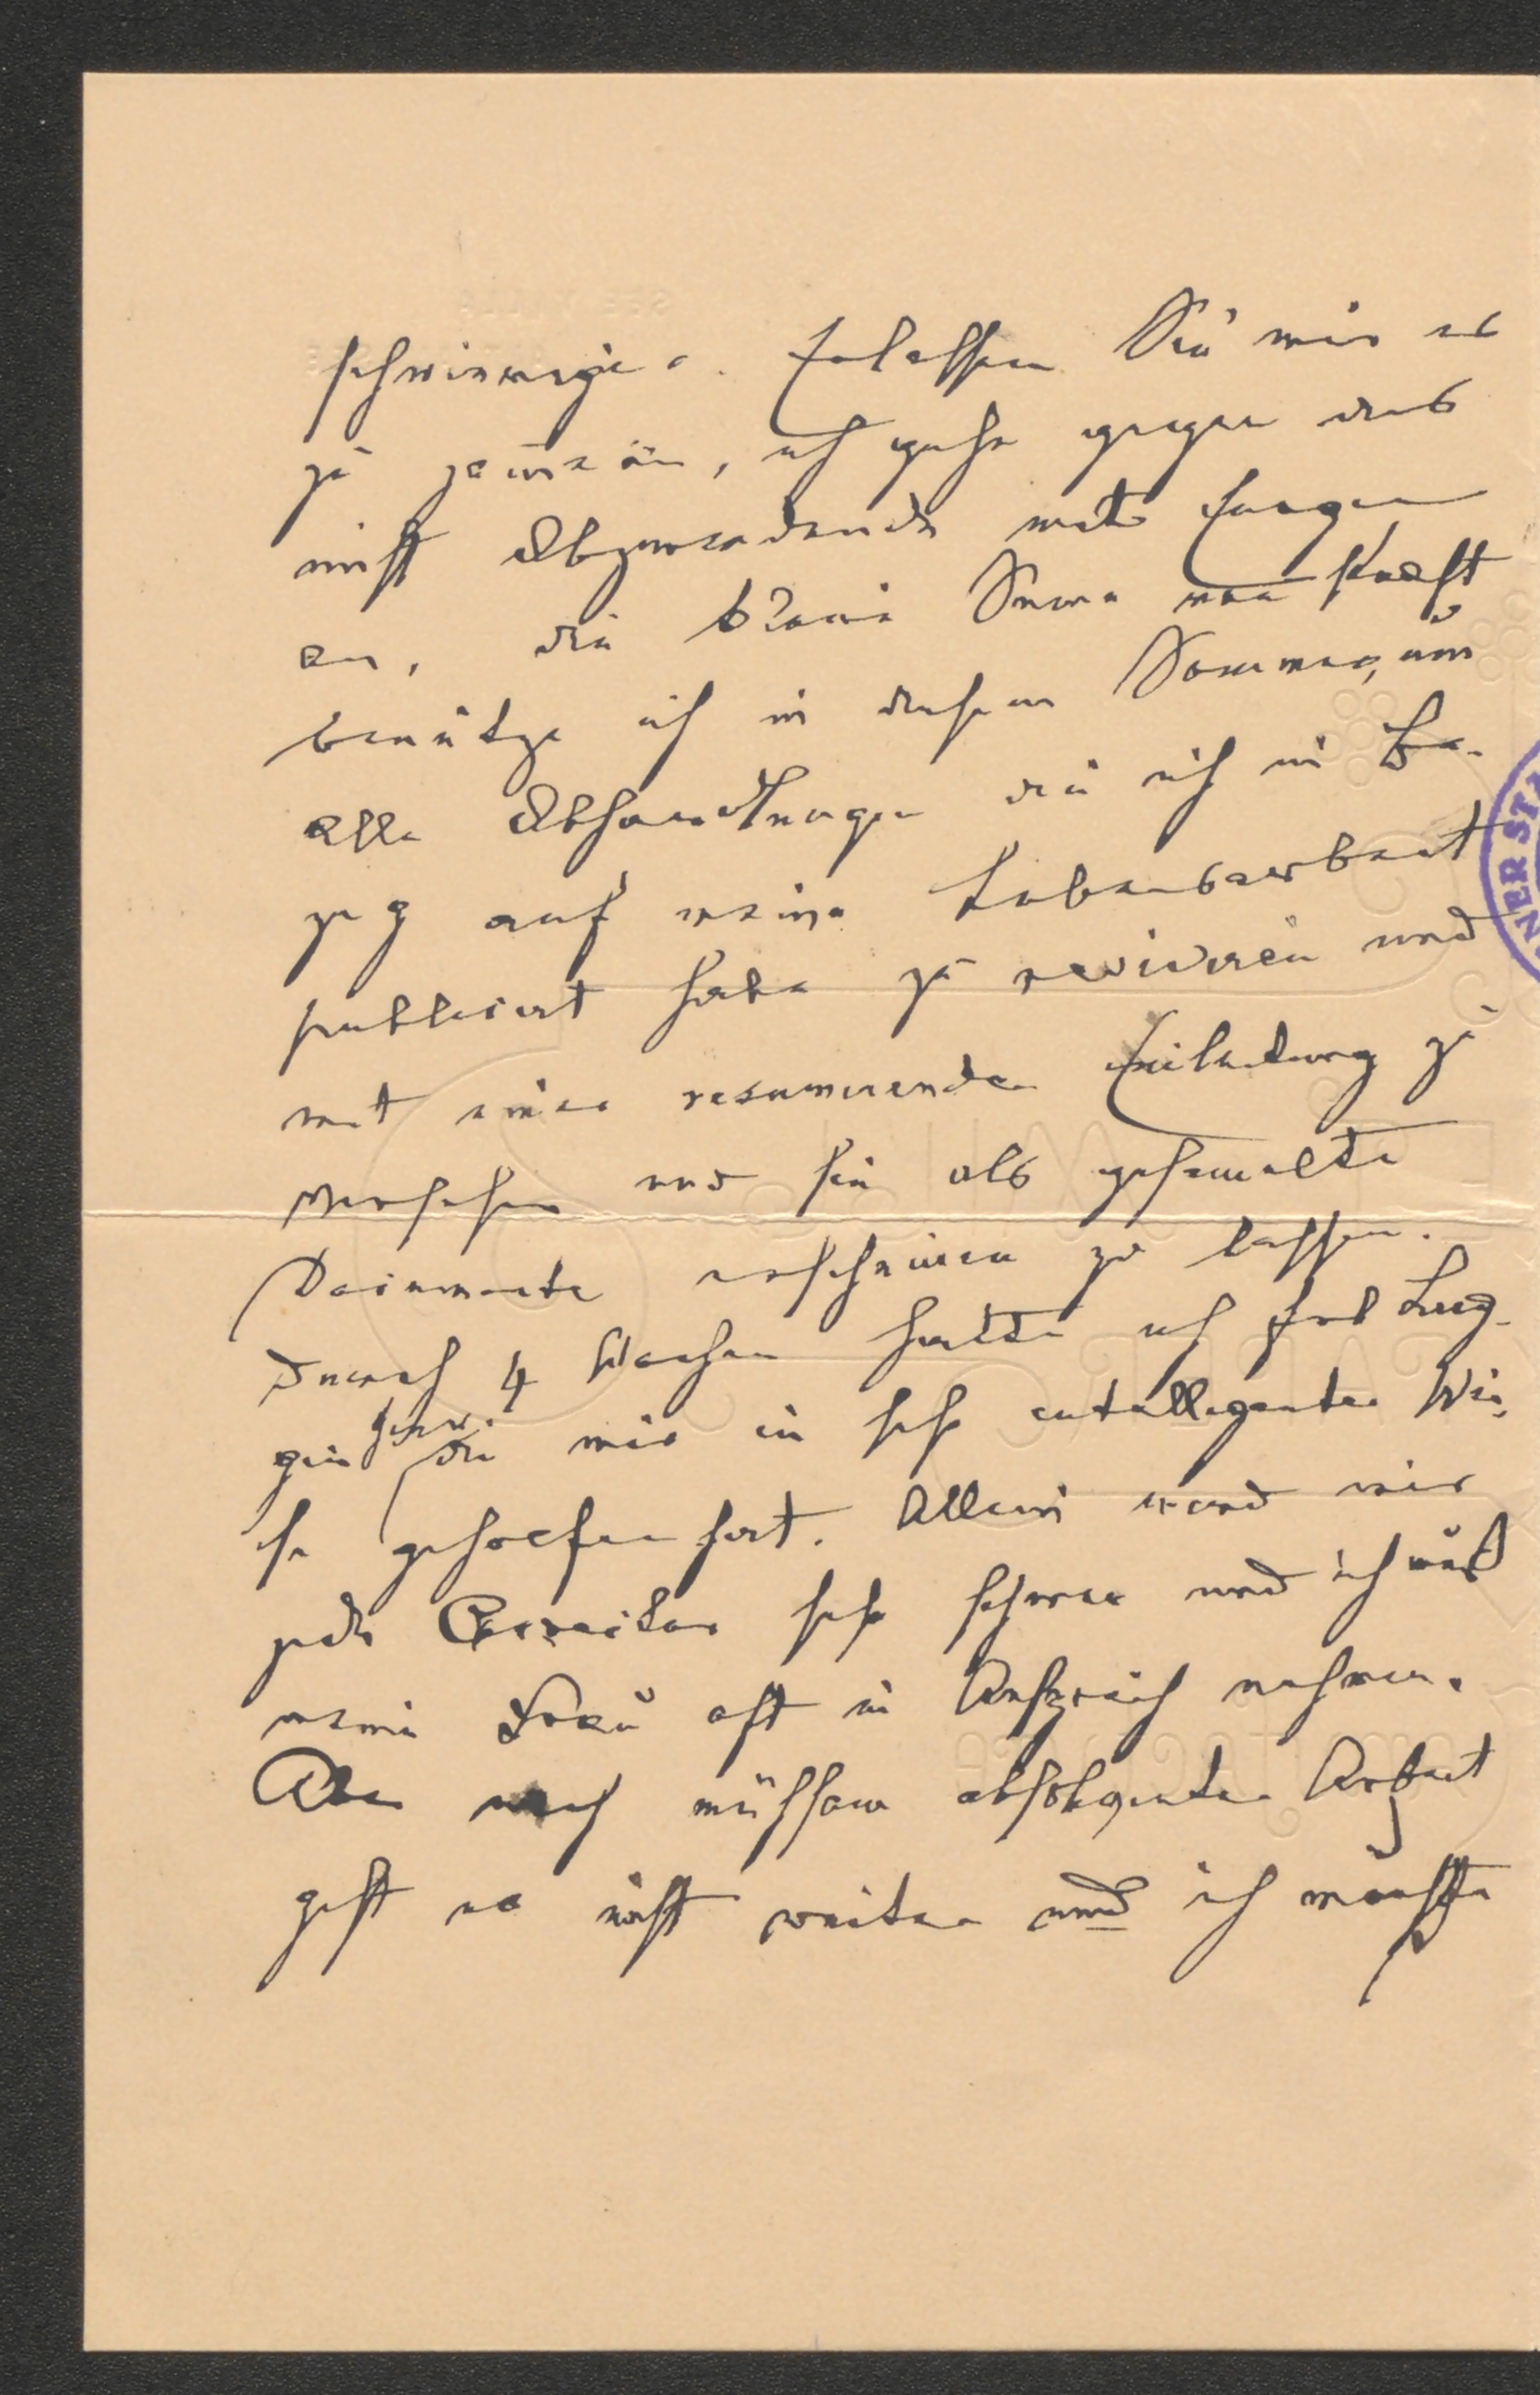 schwieriger. Erlassen Sie mir es
zu jammern, ich gehe gegen das
nicht Abzuwendende mit Energie
an, die kleine Summe von Kraft
benütze ich in diesem Sommer, um
alle Abhandlungen die ich in Be-
zug auf meine Lebensarbeit
publiciert habe zu revidieren und
mit einer resumierenden Einleitung zu
versehen und sie als gesammelte
erscheinen zu lassen.
Durch 4 Wochen hatte ich Frl
die mir in sehr intelligenter Wei-
se geholfen hat. Allein wird mir
jede sehr schwer und ich muß
meine Frau oft in Anspruch nehmen.
Aber nach mühsam absolvierter Arbeit
geht es nicht weiter und ich möchte
NER STA